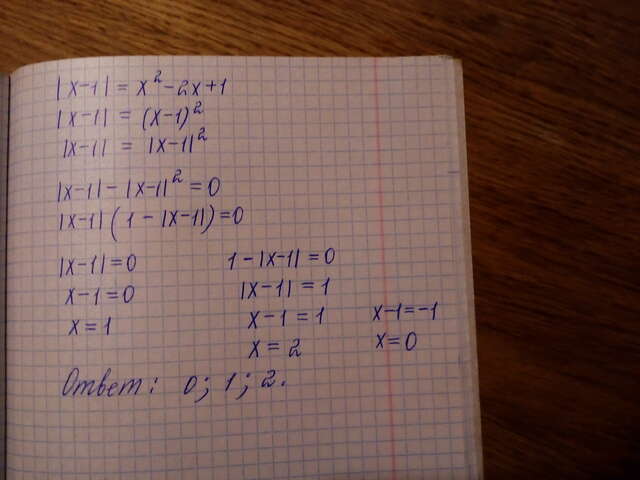 |x-1| = x²-2x+1
|x-1| = (x-1)²
|x-1| = |x-1|²
|x-1| - |x-1|² = 0
|x-1| (1 - |x-1|) = 0
|x-1| = 0
x-1 = 0
x = 1
1 - |x-1| = 0
|x-1| = 1
x-1 = 1
x = 2
x-1 = -1
x = 0
Ответ: 0; 1; 2.